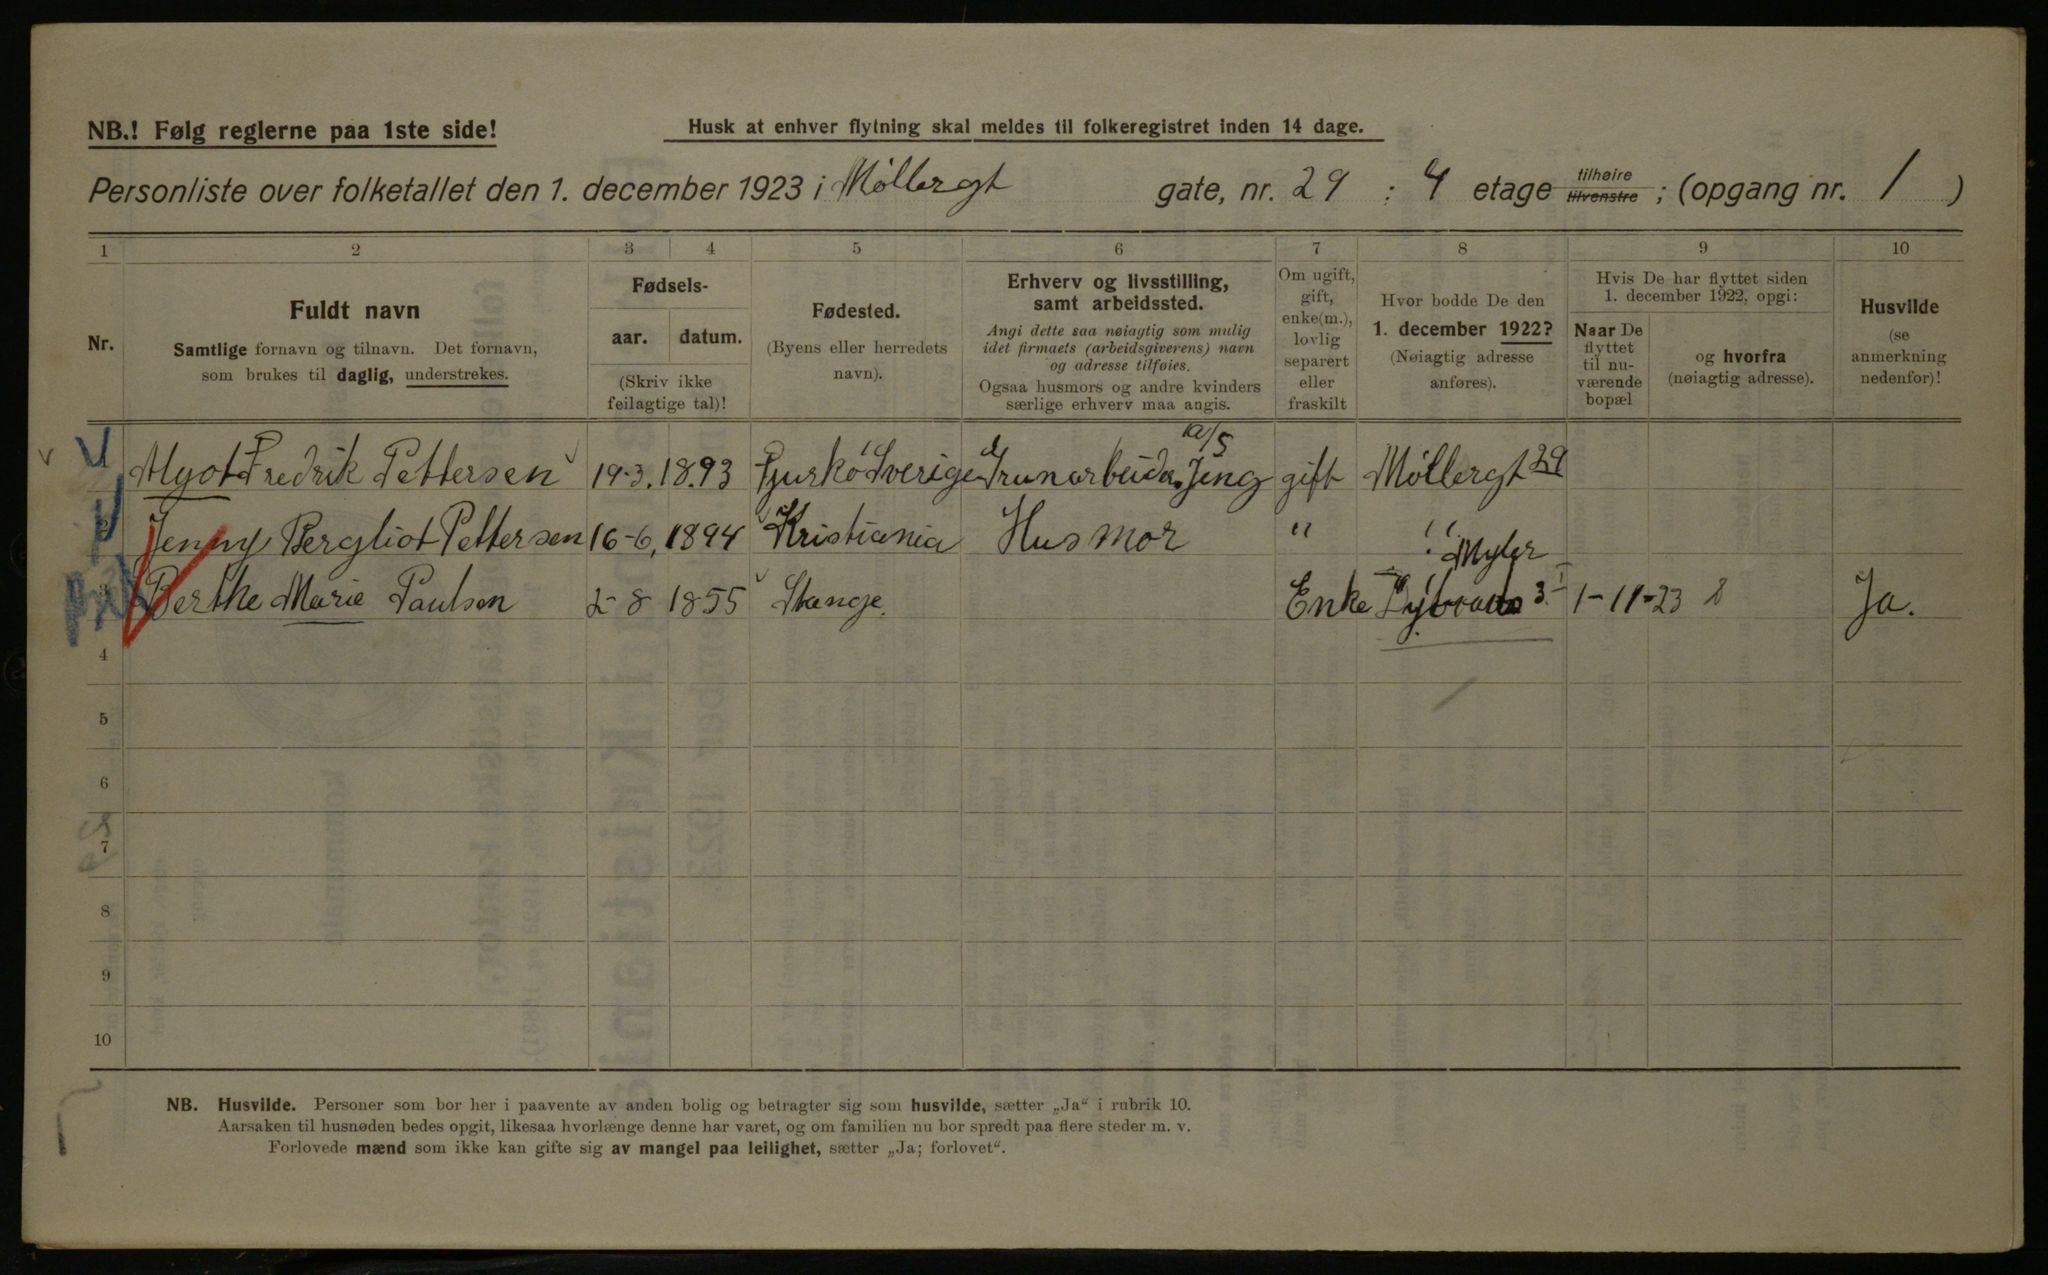 NB.! Følg reglerne paa 1ste side!
Husk at enhver flytning skal meldes til folkeregistret inden 14 dage.
Personliste over folketallet den 1. december 1923 i Møllergt gate, nr. 29 : 4 etage tilhøire tilvenstre ; (opgang nr. 1 )
1 2 3 4 5 6 7 8 9 10
Nr.
Fuldt navn
Samtlige fornavn og tilnavn. Det fornavn,
som brukes til daglig, understrekes.
Fødsels-
aar. datum.
(Skriv ikke
feilagtige tal)!
Fødested.
(Byens eller herredets
navn).
Erhverv og livsstilling,
samt arbeidssted.
Angi dette saa nøiagtig som mulig
idet firmaets (arbeidsgiverens) navn
og adresse tilføies.
Ogsaa husmors og andre kvinders
særlige erhverv maa angis.
Om ugift,
gift,
enke(m.),
lovlig
separert
eller
fraskilt
Hvor bodde De den
1. december 1922?
(Nøiagtig adresse
anføres).
Hvis De har flyttet siden
1. december 1922, opgi:
Naar De
flyttet
til nu-
værende
bopæl
og hvorfra
(nøiagtig adresse).
Husvilde
(se
anmerkning
nedenfor)!
a/s
1 Algot Fredrik Pettersen 19-3. 18.93 Sverige gift Møllergt 29
2 Jenny Bergliot Pettersen 16-6, 1894 Kristiania Husmor " "
3 Berthe Marie Paulsen 2-8 1855 Stange. Enke 1-11-23 Ja.
4
5
6
7
8
9
10
NB. Husvilde. Personer som bor her i paavente av anden bolig og betragter sig som husvilde, sætter „Ja“ i rubrik 10.
Aarsaken til husnøden bedes opgit, likesaa hvorlænge denne har varet, og om familien nu bor spredt paa flere steder m. v.
Forlovede mænd som ikke kan gifte sig av mangel paa leilighet, sætter „Ja; forlovet“.